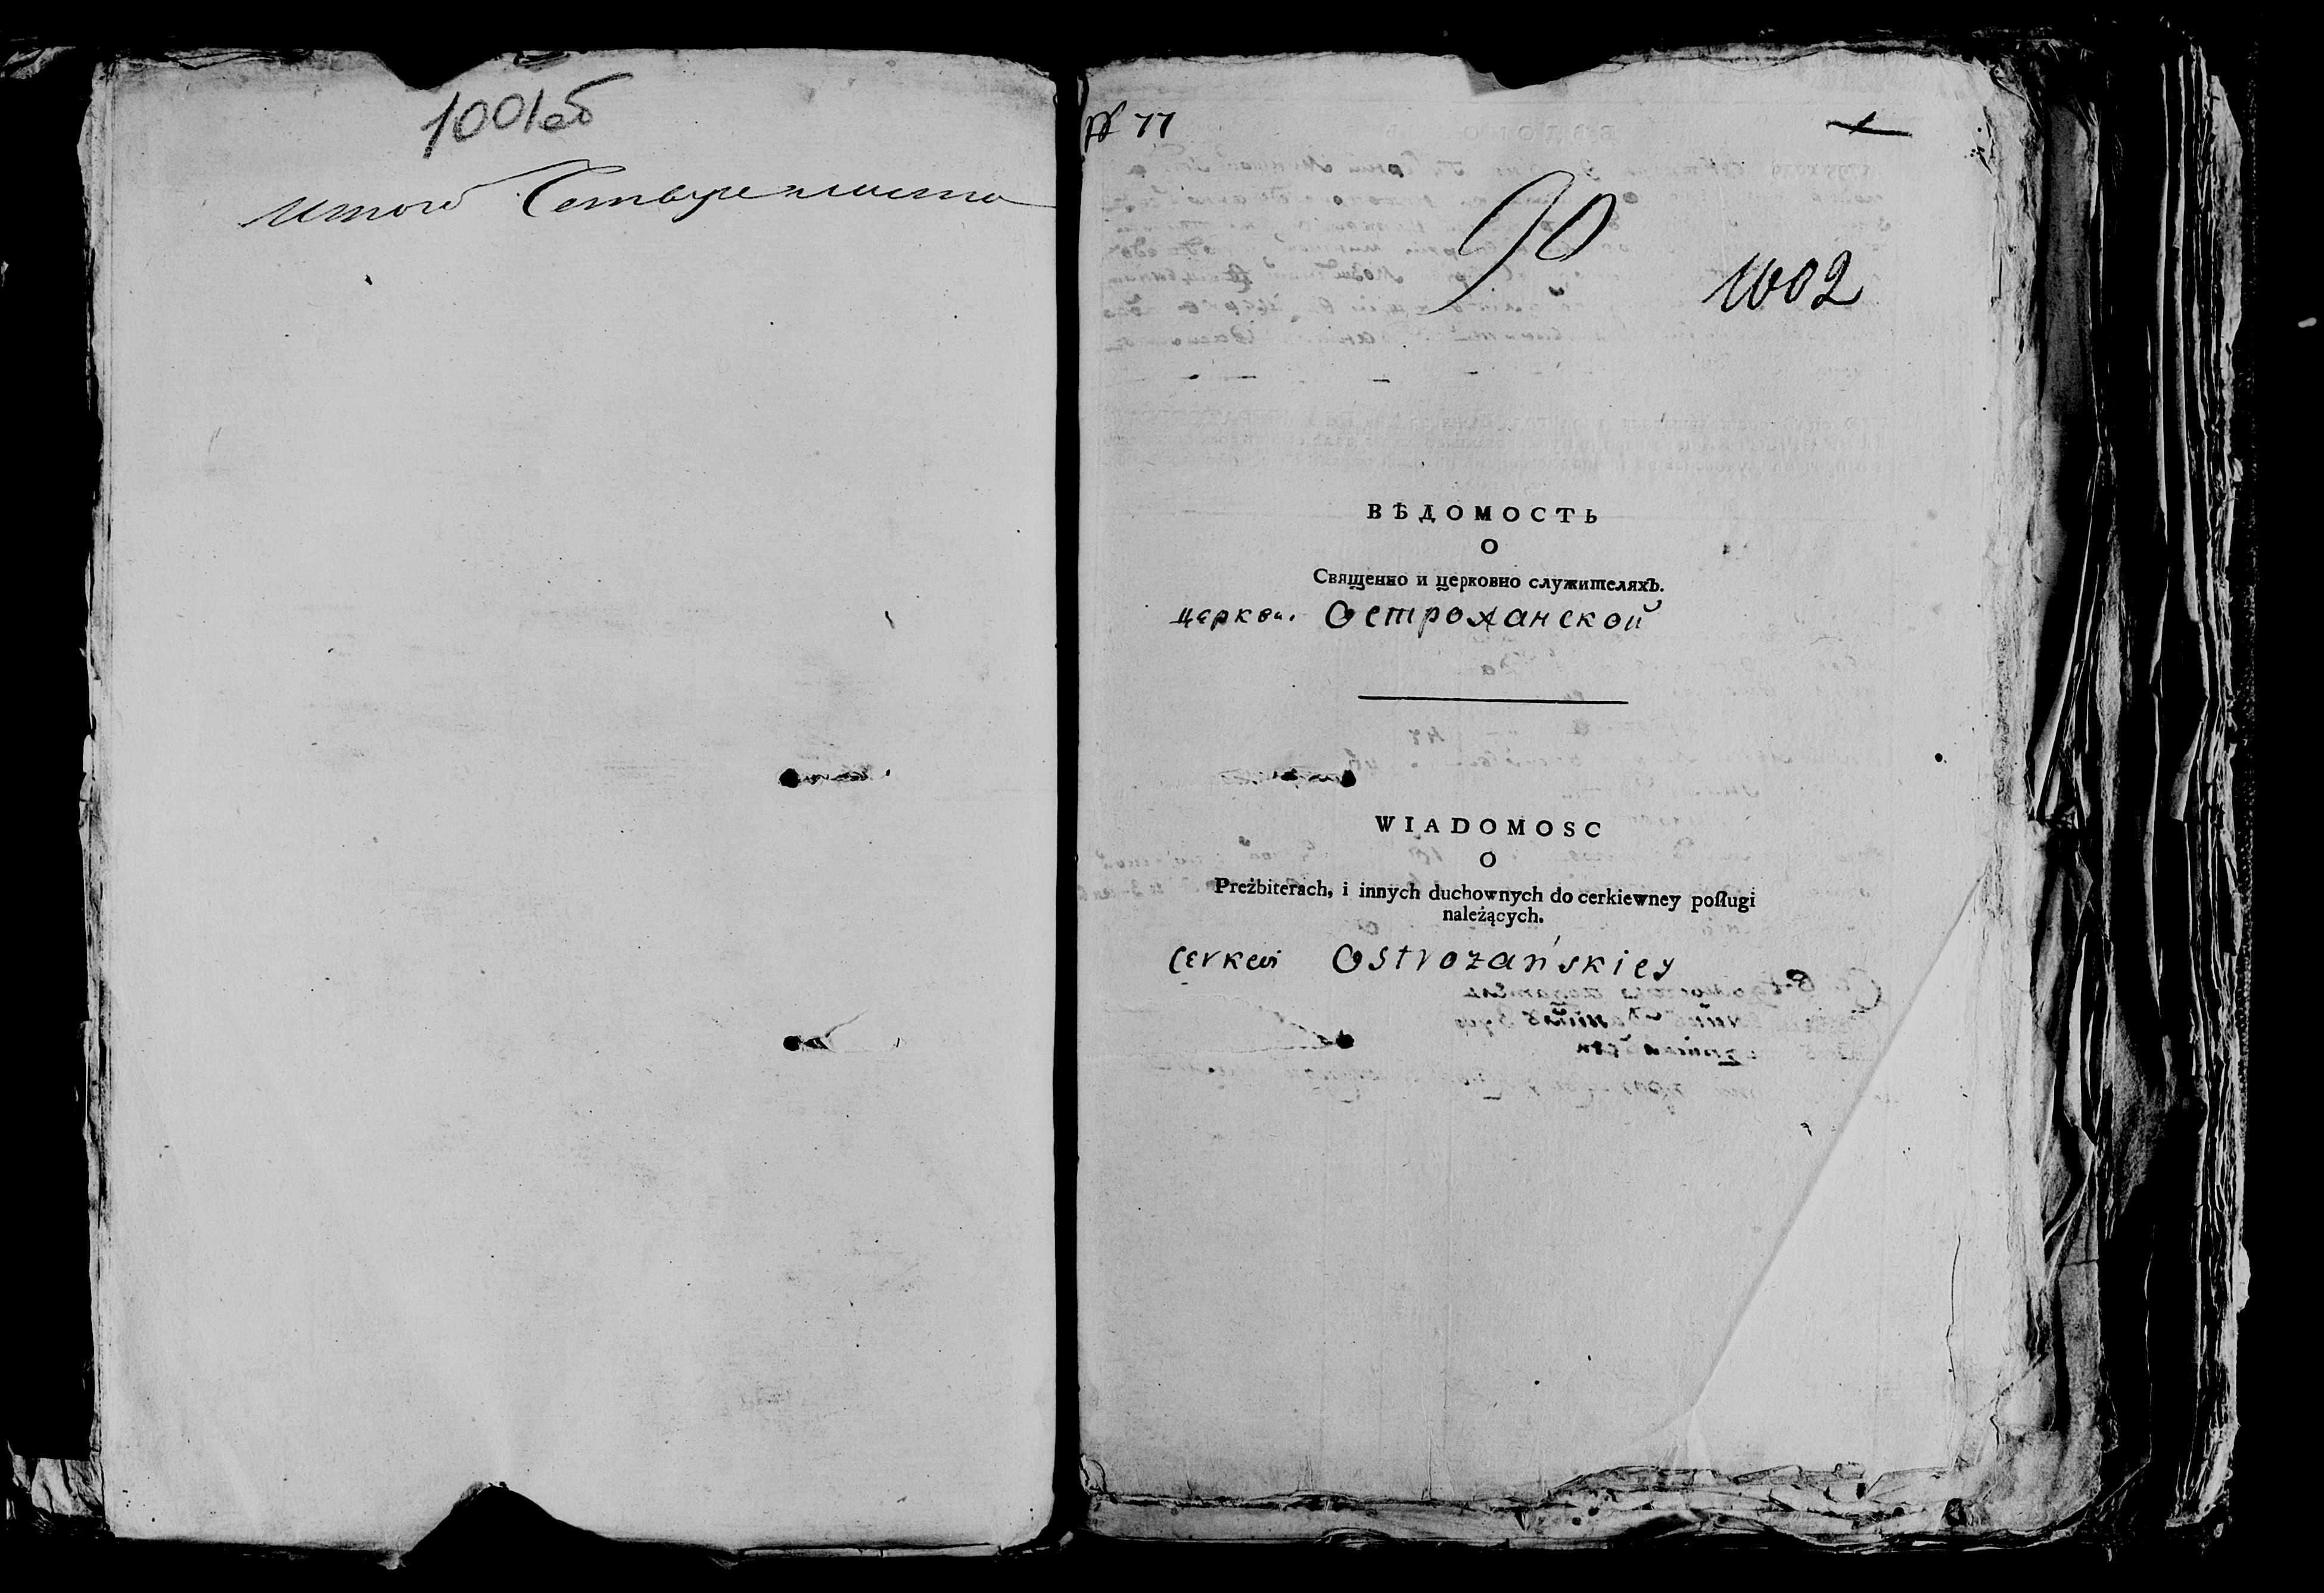 1001об
Итого Четыре листа
№ 77
90
1002
ВѢДОМОСТЬ
О
Священно и церковно служителяхЪ.
церквиОстрожанской
WIADOMOSC
O
Preżbiterach, i innych duchownych do cerkiewney poſługi
należących.
Cerkwi Ostrożańskiey